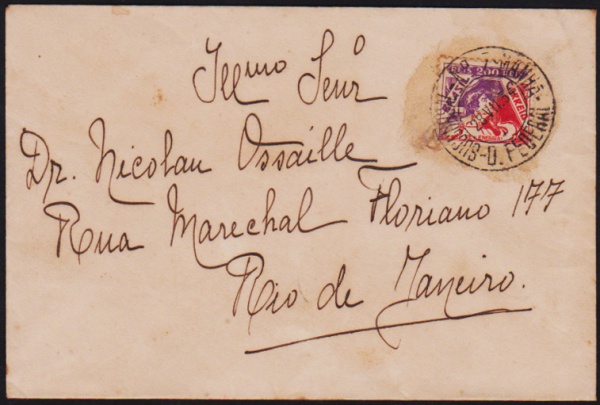 Illmo Snr
Dr. Nicolau Ossaille
Rua Marechal Floriano 177
Rio de Janeiro.
200
D. FEDERAL